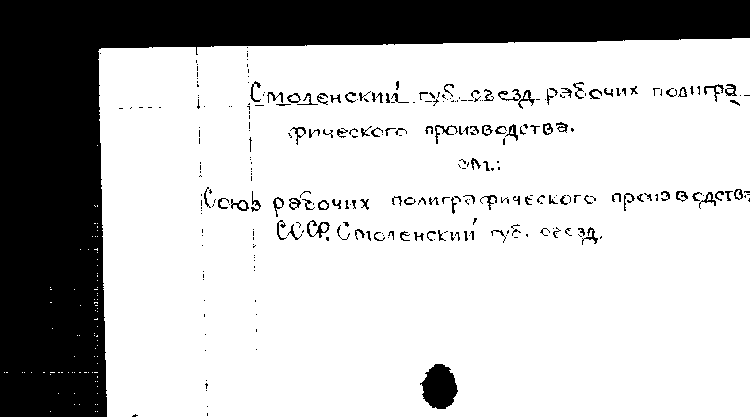 Смоленский губ. съезд рабочих полигра
фического производства.
см.:
Союз рабочих полиграфического производства
СССР. Смоленский губ. съезд.